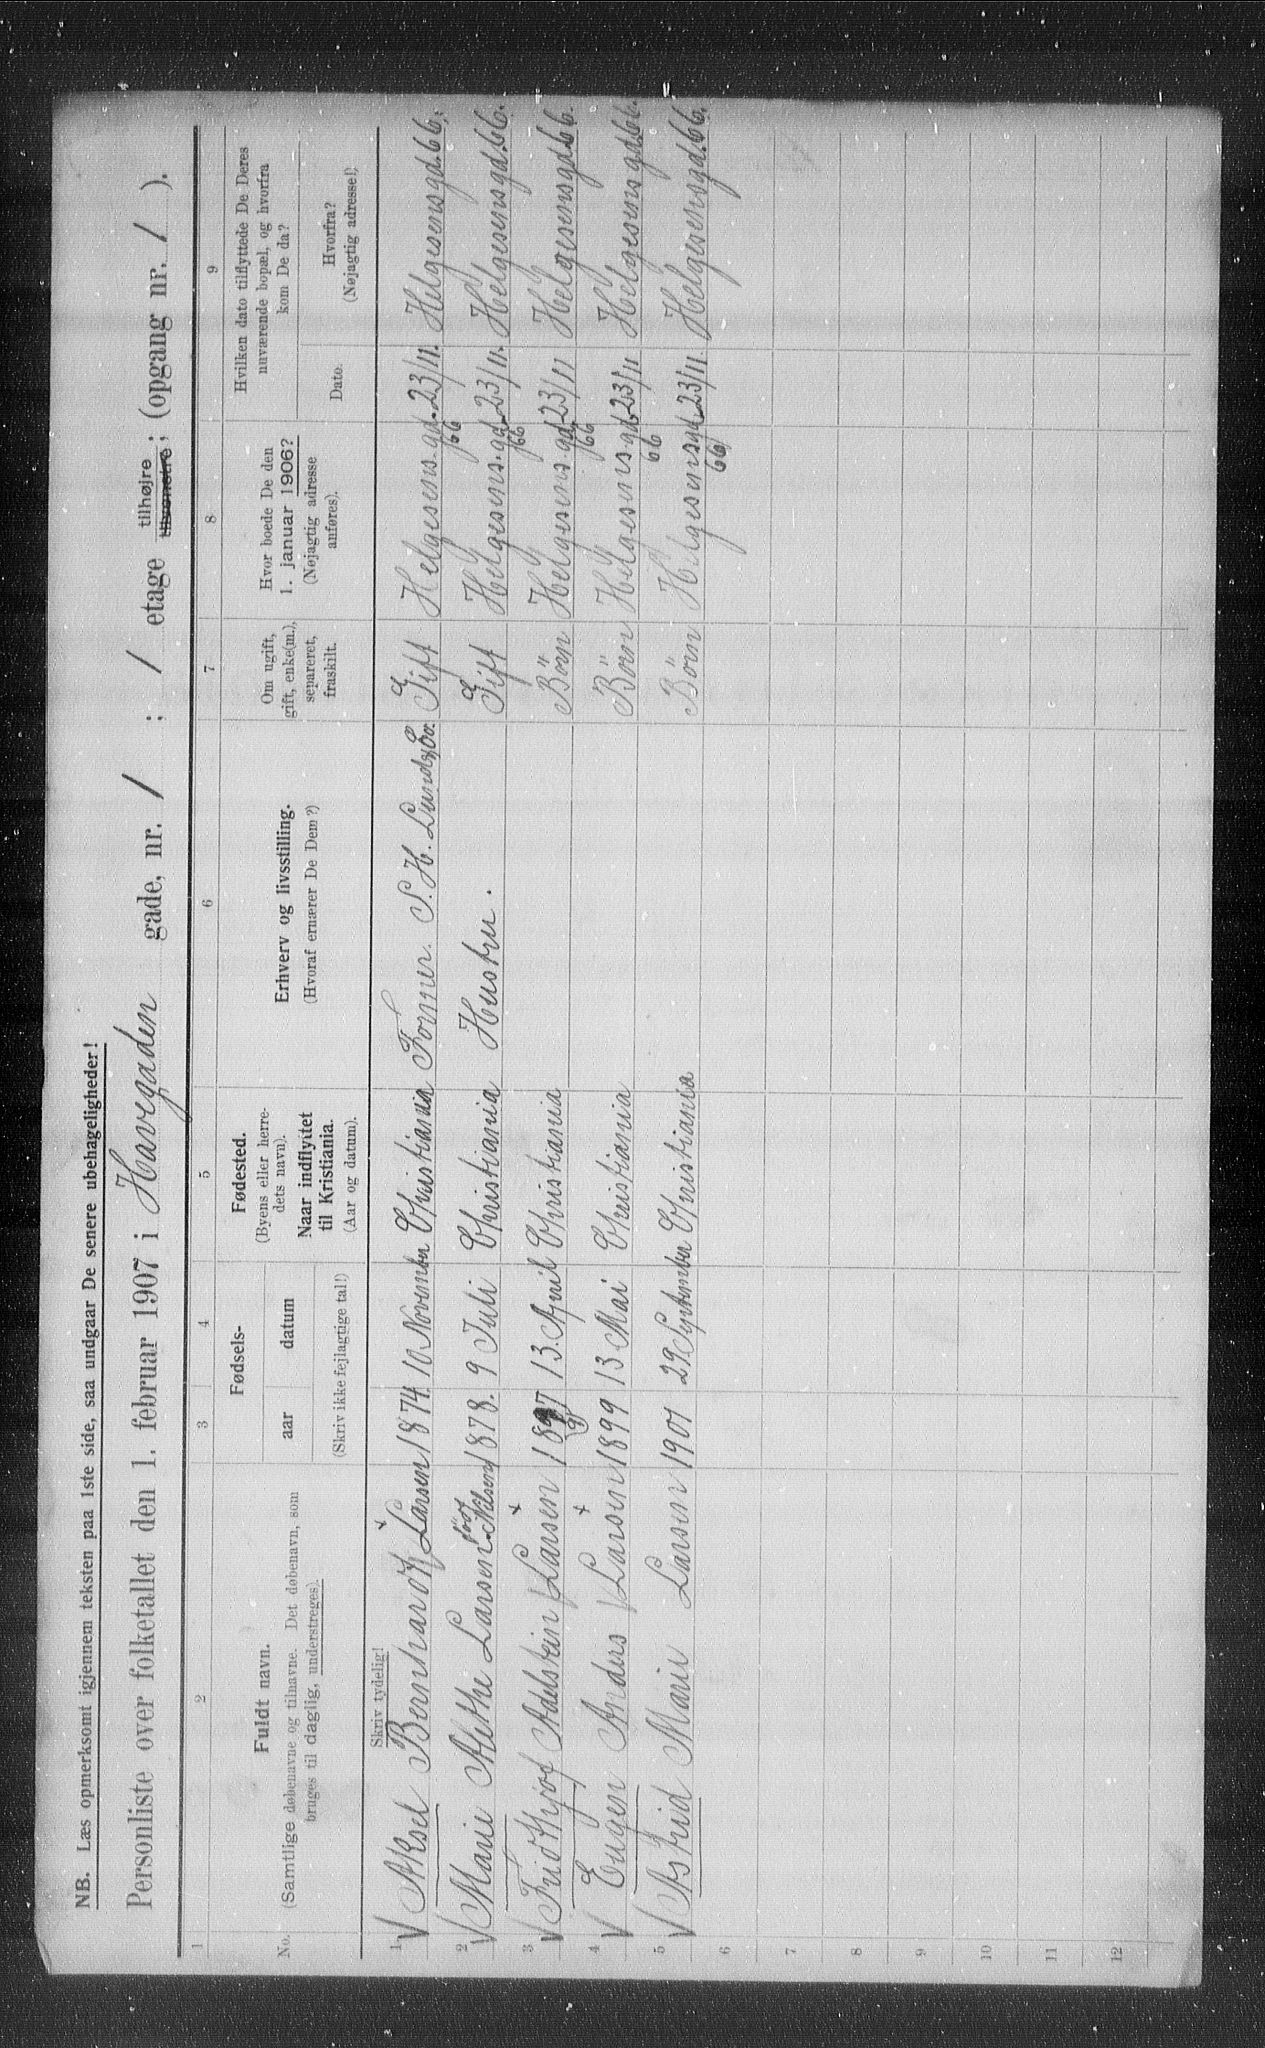 NB. Læs opmerksomt igjennem teksten paa 1ste side, saa undgaar De senere ubehageligheder!
Personliste over folketallet den 1. februar 1907 i Havegaden gade, nr. 1 ; 1 etage tilhøjre tilvenstre; (opgang nr. 1 ).
1 2 3 4 5 6 7 8 9
No.
Fuldt navn.
(Samtlige døbenavne og tilnavne. Det døbenavn, som
bruges til daglig, understreges).
Fødsels-
aar datum
(Skriv ikke fejlagtige tal!)
Fødested.
(Byens eller herre-
dets navn).
Naar indflyttet
til Kristiania.
(Aar og datum).
Erhverv og livsstilling.
(Hvoraf ernærer De Dem?)
Om ugift,
gift, enke(m.),
separeret,
fraskilt.
Hvor boede De den
1. januar 1906?
(Nøjagtig adresse
anføres).
Hvilken dato tilflyttede De Deres
nuværende bopæl, og hvorfra
kom De da?
Dato.
Hvorfra?
(Nøjagtig adresse!)
Skriv tydelig!
1 Aksel Bernhard Larsen 1874. 10 November Christiania Former. S. H. Lund & Co. Gift Helgesens.gd. 66 23/11. Helgesensgd. 66.
2 Marie Methe Larsen född Nilsen 1878. 9 Juli Christiania Hustru. Gift Helgesens.gd. 66 23/11. Helgesensgd. 66.
3 Fridthjof Adelstein Larsen 1897 (9) 13. April Christiania Börn Helgesens.gd. 66 23/11 Helgesensgd. 66.
4 Eugen Anders Larsen 1899 13 Mai Christiania Börn Helgesensgd. 66 23/11 Helgesensgd. 66.
5 Astrid Marie Larsen 1901 29. September Christiania Börn Helgesensgd. 66 23/11. Helgesensgd. 66.
6
7
8
9
10
11
12